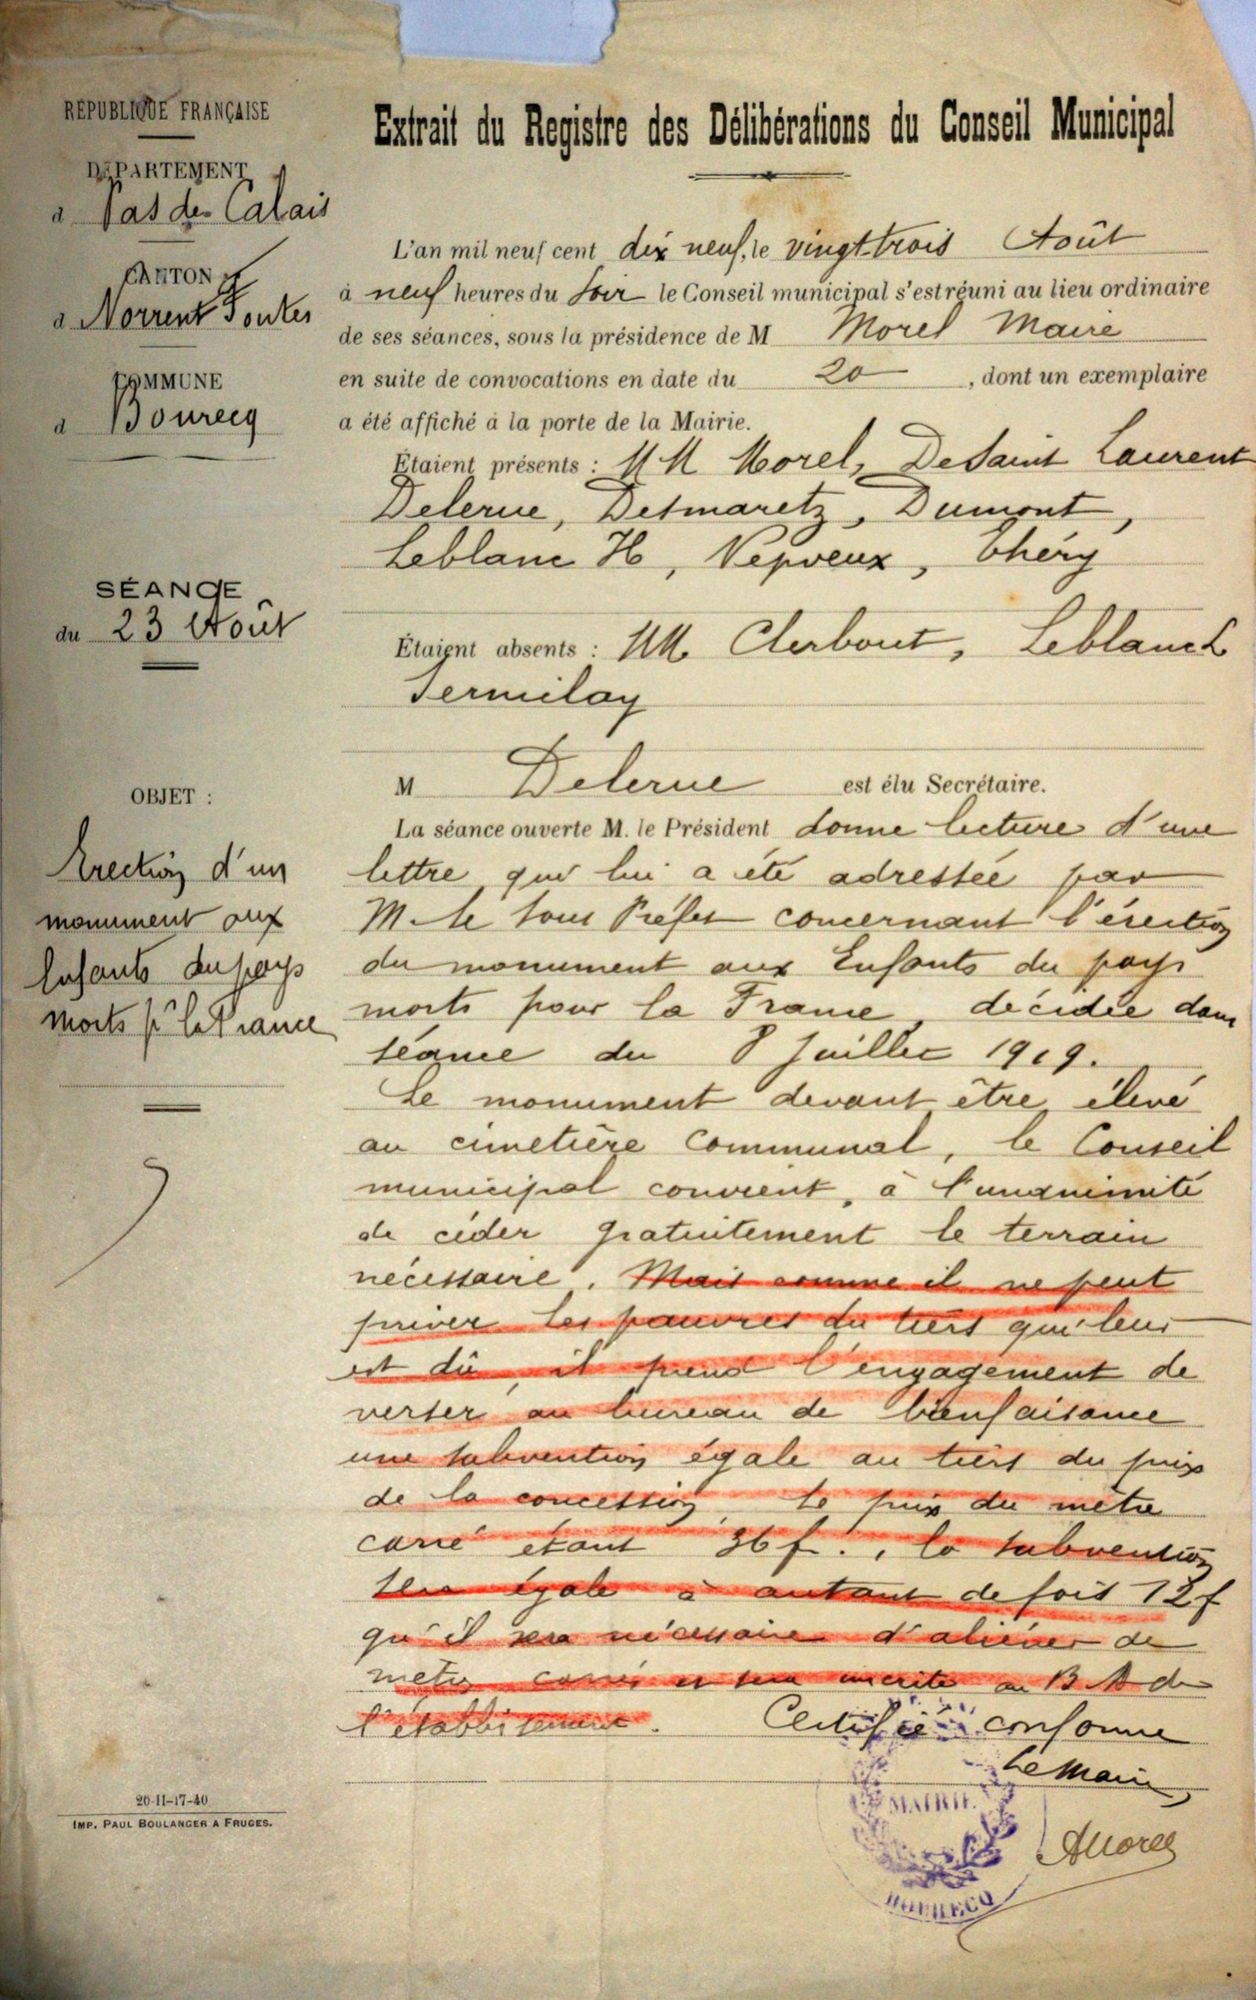 RÉPUBLIQUE FRANÇAISE
DÉPARTEMENT
d Pas de Calais
CANTON
d Norrent Fontes
COMMUNE
d Bourecq
SÉANCE
du 23 Août
OBJET :
Erection d'un
monument aux
Enfants du pays
morts pr la France
20-11-17-40
IMP. PAUL BOULANGER A FRUGES.
Extrait du Registre des Délibérations du Conseil Municipal
L'an mil neuf cent dix neuf, le vingt trois Août
à neuf heures du Soir le Conseil municipal s'est réuni au lieu ordinaire
de ses séances, sous la présidence de M Morel Maire
en suite de convocations en date du 20 , dont un exemplaire
a été affiché à la porte de la Mairie.
Étaient présents : MM Morel, De Saint Laurent
Delerue, Desmaretz, Dumont,
Leblanc H, Nepveux, Théry
Étaient absents : MM Clerbout, Leblanc L
Vermilay
M Delerue est élu Secrétaire.
La séance ouverte M. le Président donne lecture d'une
lettre qui lui a été adressée par
M. le Sous Préfet concernant l'érection
du monument aux Enfants du pays
morts pour la France, décidée dans
séance du 8 Juillet 1919.
Le monument devant être élevé
au cimetière communal, le Conseil
municipal convient, à l'unanimité
de céder gratuitement le terrain
nécessaire. Mais comme il ne peut
priver les pauvres du tiers qui leur
est dû, il prend l'engagement de
verser au bureau de bienfaisance
une subvention égale au tiers du prix
de la concession, le prix du mètre
carré étant 36 f., la subvention
sera égale à autant de fois 12 f
qu'il sera nécessaire d'aliéner de
mètres carrés et sera inscrite au B A de
l'établissement.
Certifié conforme
Le Maire,
AMorel
MAIRIE
BOURECQ